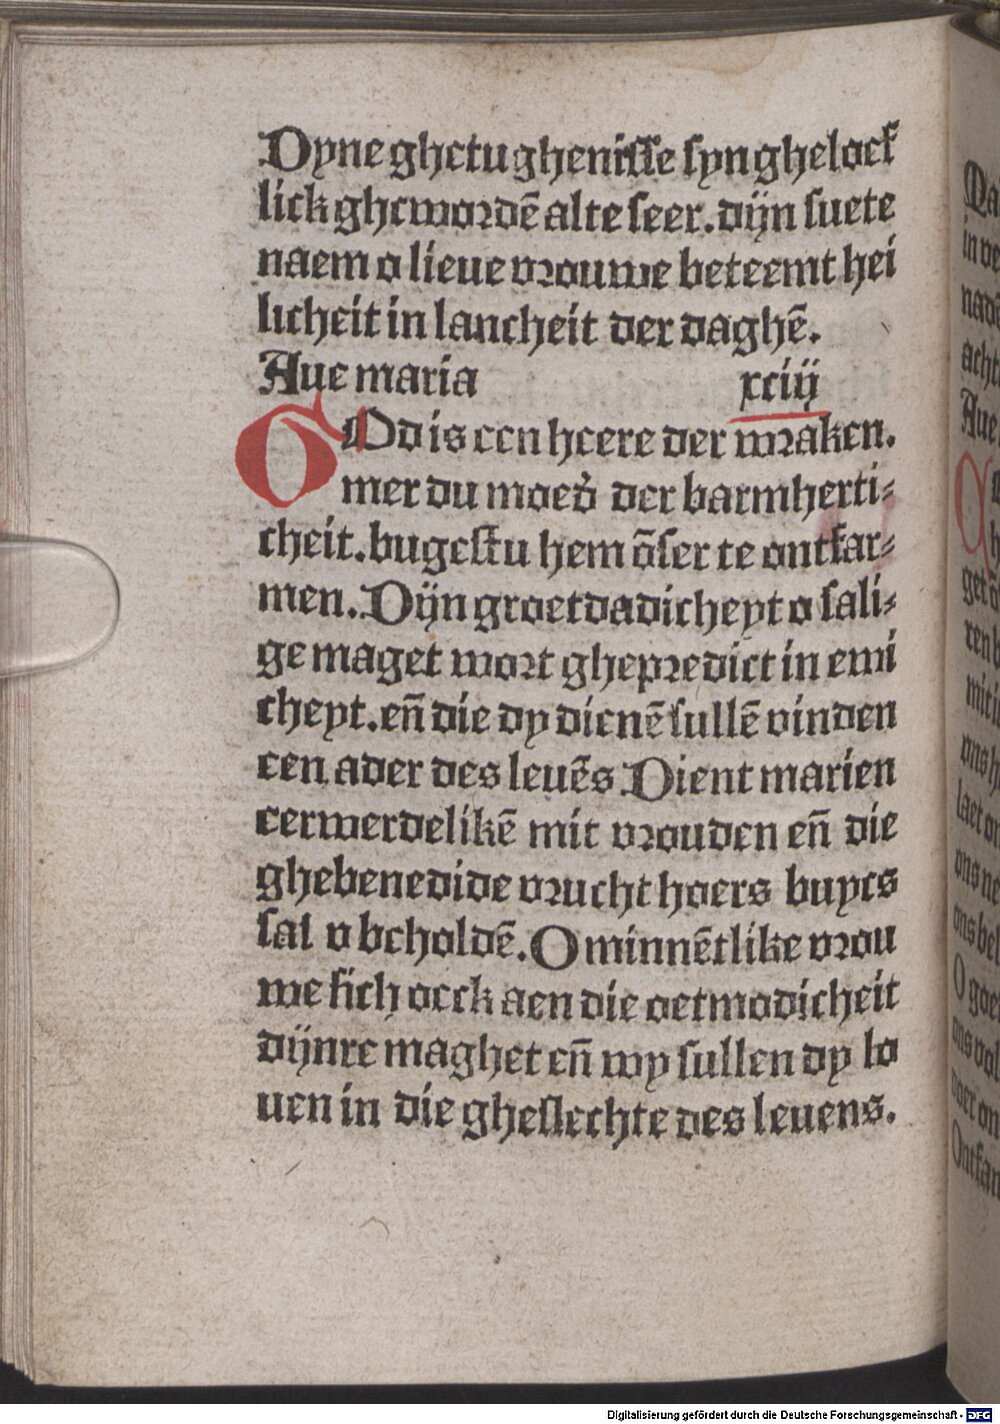 Dyne ghetughenisse syn gheloef
lick ghewordē alte seer. dijn suete
naem o lieue vrouwe beteemt hei
licheit in lancheit der daghē.
Aue maria xciij
GOd is een heere der wraken.
mer du moed' der barmherti-
cheit. bugestu hem ōser te ontfar-
men. Dijn groetdadicheyt o sali-
ge maget wort ghepredict in ewi
cheyt. eñ die dy dienē sullē vinden
een ader des leuēs Dient marien
eerwerdelikē mit vrouden eñ die
ghebenedide vrucht hoers buycs
sal v beholdē. O minnētlike vrou
we sich oeck aen die oetmodicheit
dijnre maghet eñ wy sullen dy lo
uen in die gheslechte des leuens.
Digitalisierung gefördert durch die Deutsche Forschungsgemeinschaft - DFG